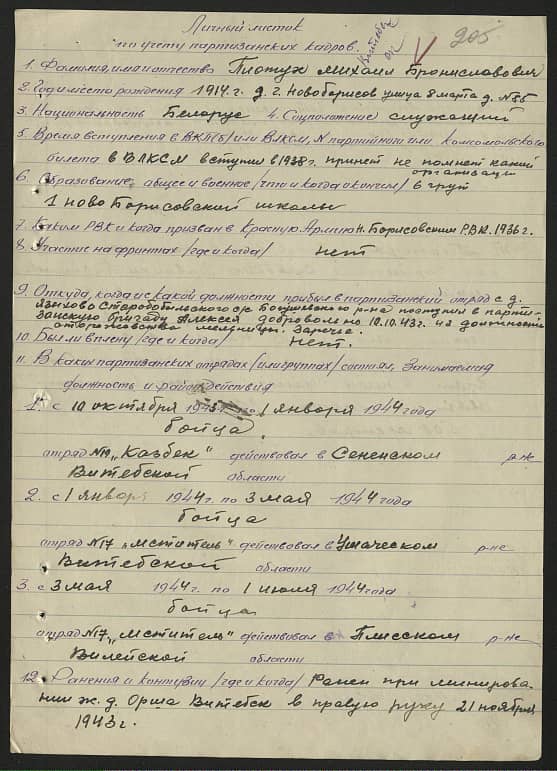 Личный листок
по учету партизанских кадров.
205
1. Фамилия, имя и отчество Плотух Михаил Брониславович
2. Год и место рождения 1914 г. д. г. Новоборисов улица 8 марта д. №85
3. Национальность Белорус 4. Соцположение служащий
5. Время вступления в ВКП(б) или ВЛКСМ, № партийного или комсомольского
билета в ВЛКСМ вступил в 1938 г. принят не помнет какой
организации
6. Образование общее и военное /что и когда окончил/ 6 груп
1 ново Борисовский школы
7. Каким РВК и когда призван в Красную Армию Н. Борисовским РВК. 1936 г.
8. Участие на фронтах /где и когда/ нет
9. Откуда, когда и с какой должности прибыл в партизанский отряд с д.
Язихово Старобобыльского с/с Богушевского р-на поступил в парти-
занскую бригаду Алексея добровольно 10.10.43 г. из должности
мельницы. Заречье.
10. Был ли в плену /где и когда/ нет.
11. В каких партизанских отрядах /или группах/ состоял, занимаемая
должность и район действия
1. с 10 октября 1943 по 1 января 1944 года
бойца
отряд №10 „Казбек" действовал в Сененском р-не
Витебской области
2. с 1 января 1944 г. по 3 мая 1944 года
бойца
отряд №17 „Мститель" действовал в Ушаческом р-не
Витебской области
3. с 3 мая 1944 г. по 1 июля 1944 года
бойца
отряд №17 „Мститель" действовал в Плисском р-не
Вилейской области
12. Ранения и контузии /где и когда/ Ранен при минирова-
нии ж. д. Орша Витебск в правую ручу 21 ноября
1943 г.